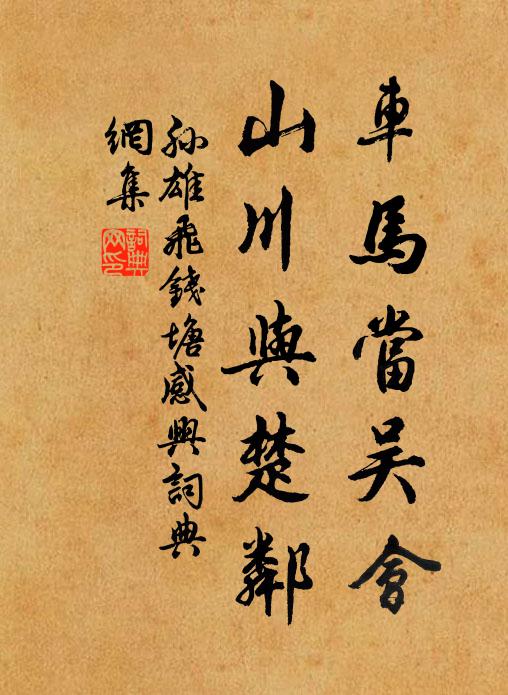 車馬當吴會
山川與楚鄰
孫雄飛錢塘感興詞典
網集
詞典
网印